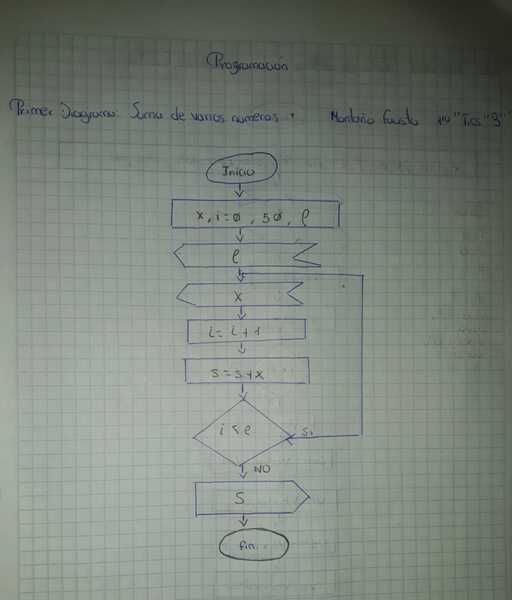 Programación
Primer Diagrama: Suma de varios numeros. Montaño Fausto 1ro "Tics" "3"
Inicio
x, i=ø, sø, e
e
x
i= i+1
s=s+x
i<e
Si
NO
S
fin.